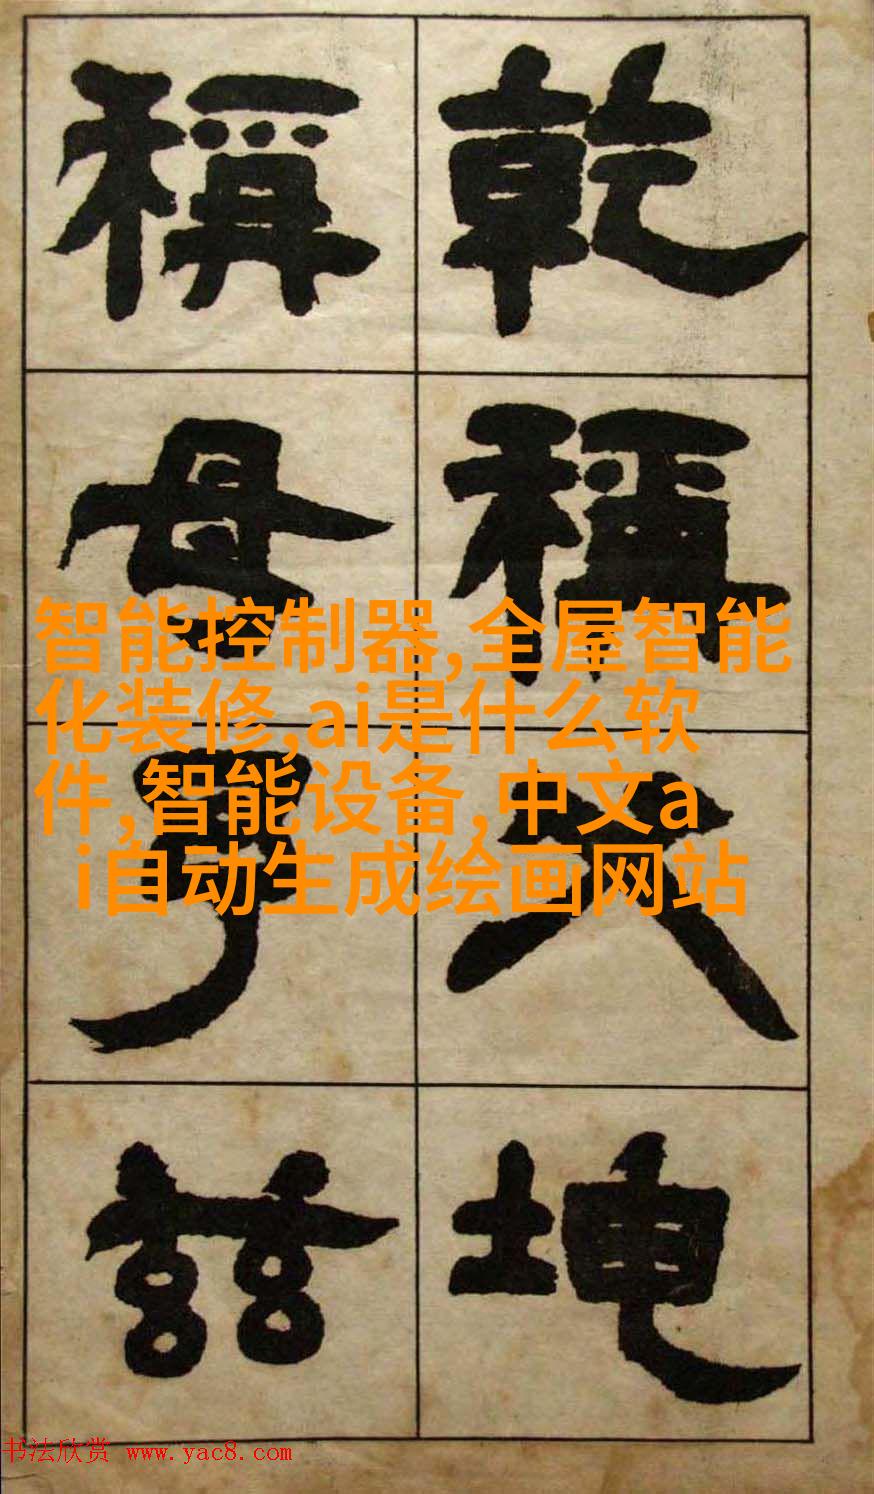 乾稱父坤
稱母予茲
智能控制器,全屋智能
化装修,ai是什么软
件,智能设备,中文a
i自动生成绘画网站
书法欣赏 www.yac8.com